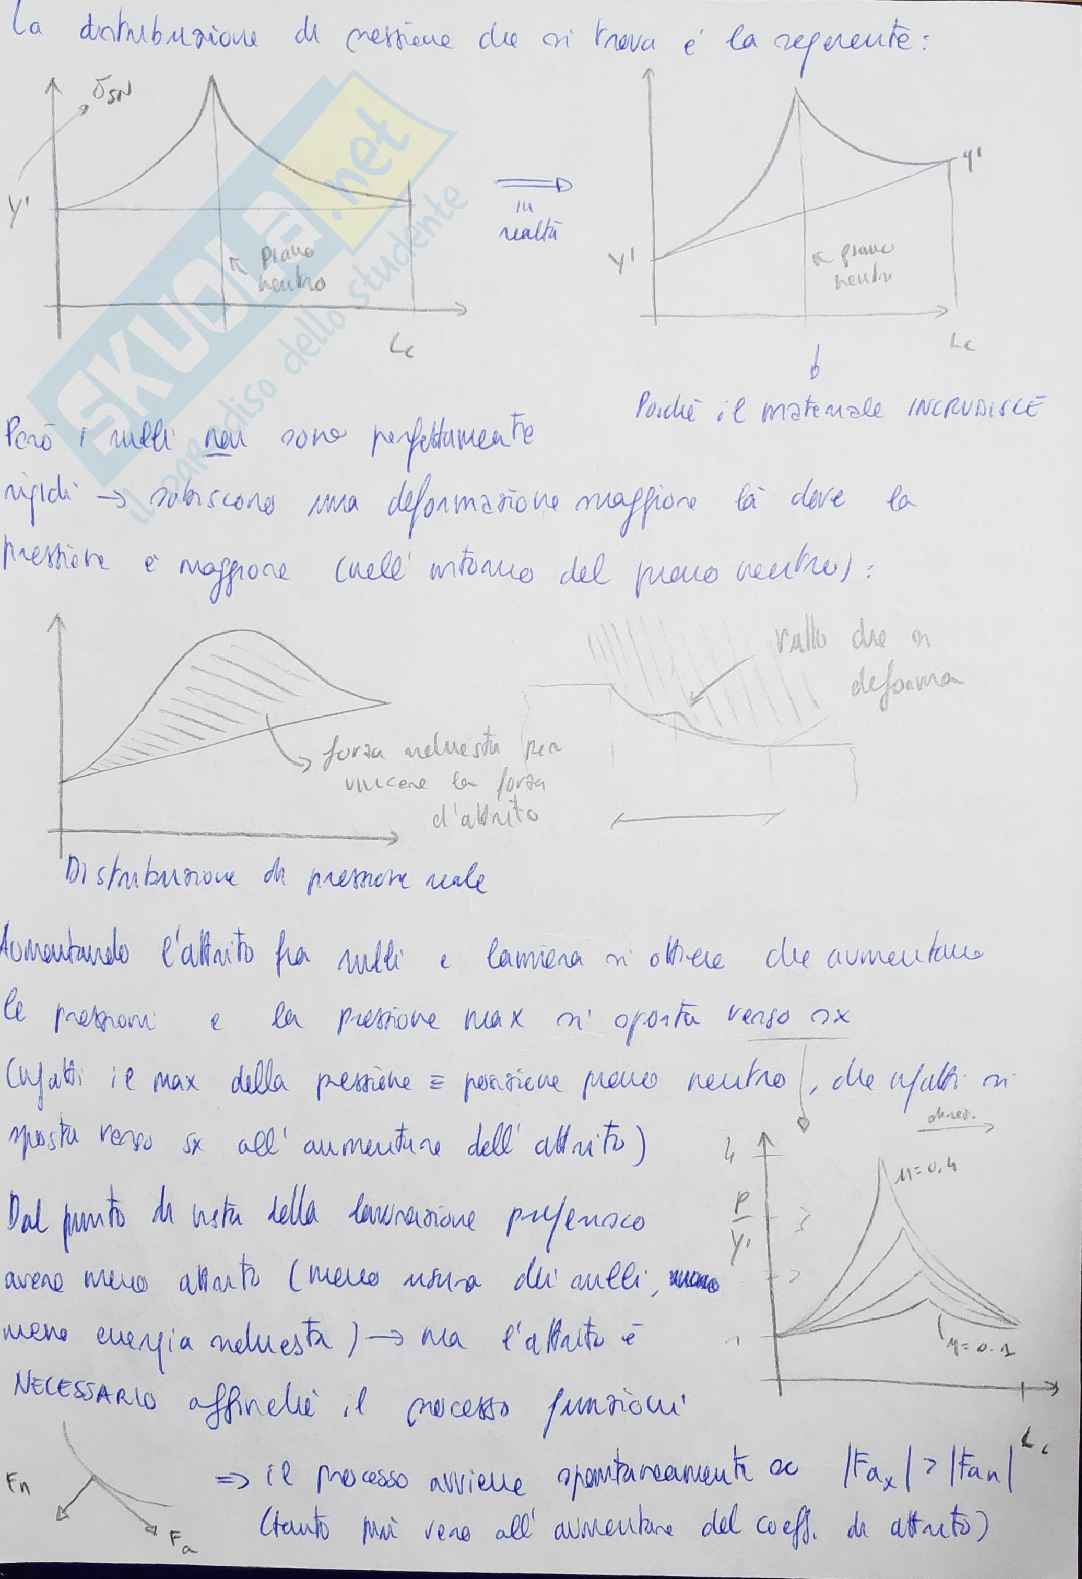 La distribuzione di pressione che si trova è la seguente:
σSN
Y'
piano
neutro
Lc
in
realtà
Y'
Y'
piano
neutro
Lc
Poiché il materiale INCRUDISCE
Però i rulli non sono perfettamente
rigidi → subiscono una deformazione maggiore là dove la
pressione è maggiore (nell'intorno del piano neutro):
rullo che si
deforma
forza richiesta per
vincere la forza
d'attrito
Distribuzione di pressione reale
Aumentando l'attrito fra rulli e lamiera si ottiene che aumentano
le pressioni e la pressione max si sposta verso sx
(infatti il max della pressione ≡ posizione piano neutro, che infatti si
sposta verso sx all'aumentare dell'attrito)
Dal punto di vista della lavorazione preferisco
avere meno attrito (meno usura dei rulli,
meno energia richiesta) → ma l'attrito è
NECESSARIO affinché il processo funzioni
4
P
Y'
3
2
1
μ=0.4
μ=0.1
Lc
Fn
Fa
⇒ il processo avviene spontaneamente se |Fax| > |Fan|
(tanto più vero all'aumentare del coeff. di attrito)
SKUOLA.net
il paradiso dello studente